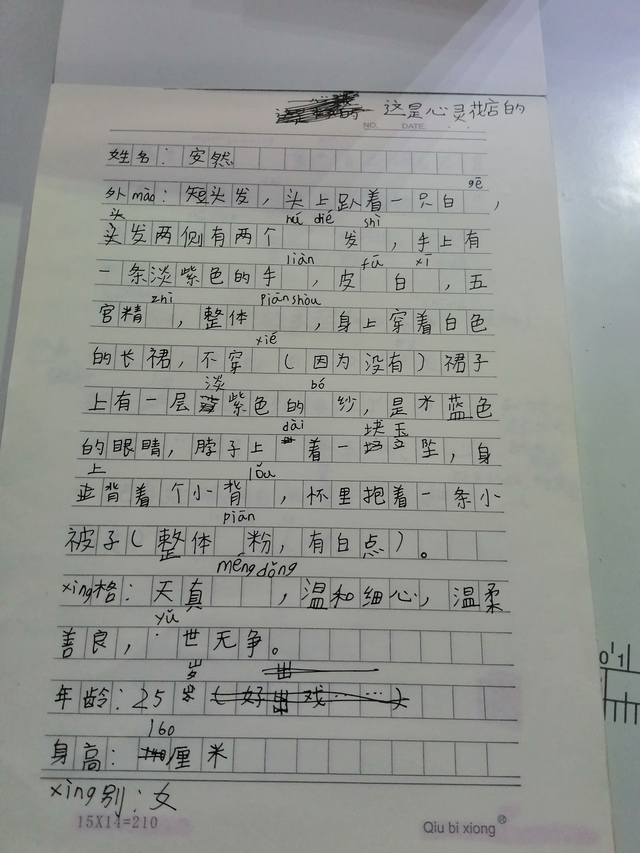 这是心灵花店的
NO. DATE:
姓名：安然
gē
外mào：短头发，头上趴着一只白 ，
头 hú dié shì
头发两侧有两个 发 ，手上有
liàn fū xī
一条淡紫色的手 ，皮 白 ，五
zhì piānshòu
官精 ，整体 ，身上穿着白色
xié
的长裙，不穿 （因为没有）裙子
淡 bó
上有一层 紫色的 纱，是水蓝色
dài 块玉
的眼睛，脖子上 着一 坠，身
上 lǒu
背着个小背 ，怀里抱着一条小
piān
被子（整体 粉，有白点）。
méngdǒng
xìng格：天真 ，温和细心，温柔
yǔ
善良， 世无争。
岁 出
年龄：25岁（好出戏……）
160
身高： 厘米
xìng别：女
15X14=210 Qiu bi xiong®